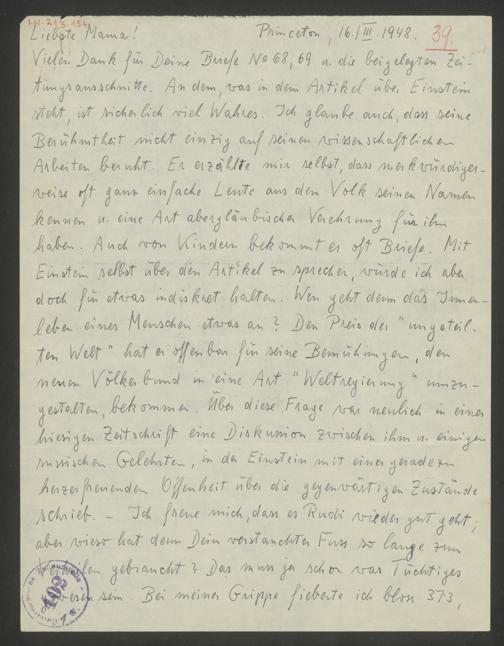 I.N. 213.154
Liebste Mama! Princeton, 16./III. 1948. 39.
Vielen Dank für Deine Briefe No 68, 69 u. die beigelegten Zei-
tungsausschnitte. An dem, was in dem Artikel über Einstein
steht, ist sicherlich viel Wahres. Ich glaube auch, dass seine
Berühmtheit nicht einzig auf seinen wissenschaftlichen
Arbeiten beruht. Er erzählte mir selbst, dass merkwürdiger-
weise oft ganz einfache Leute aus dem Volk seinen Namen
kennen u. eine Art abergläubischer Verehrung für ihn
haben. Auch von Kindern bekommt er oft Briefe. Mit
Einstein selbst über den Artikel zu sprechen, würde ich aber
doch für etwas indiskret halten. Wen geht denn das Innen-
leben eines Menschen etwas an? Den Preis der "ungeteil-
ten Welt" hat er offenbar für seine Bemühungen, den
neuen Völkerbund in eine Art "Weltregierung" umzu-
gestalten, bekommen. Über diese Frage war neulich in einer
hiesigen Zeitschrift eine Diskussion zwischen ihm u. einigen
russischen Gelehrten, in der Einstein mit einer geradezu
herzerfreuenden Offenheit über die gegenwärtigen Zustände
schrieb. – Ich freue mich, dass es Rudi wieder gut geht;
aber wieso hat denn Dein verstauchter Fuss so lange zum
Verheilen gebraucht? Das muss ja schon was Tüchtiges
gewesen sein. Bei meiner Grippe fieberte ich bloss 37.3,
402